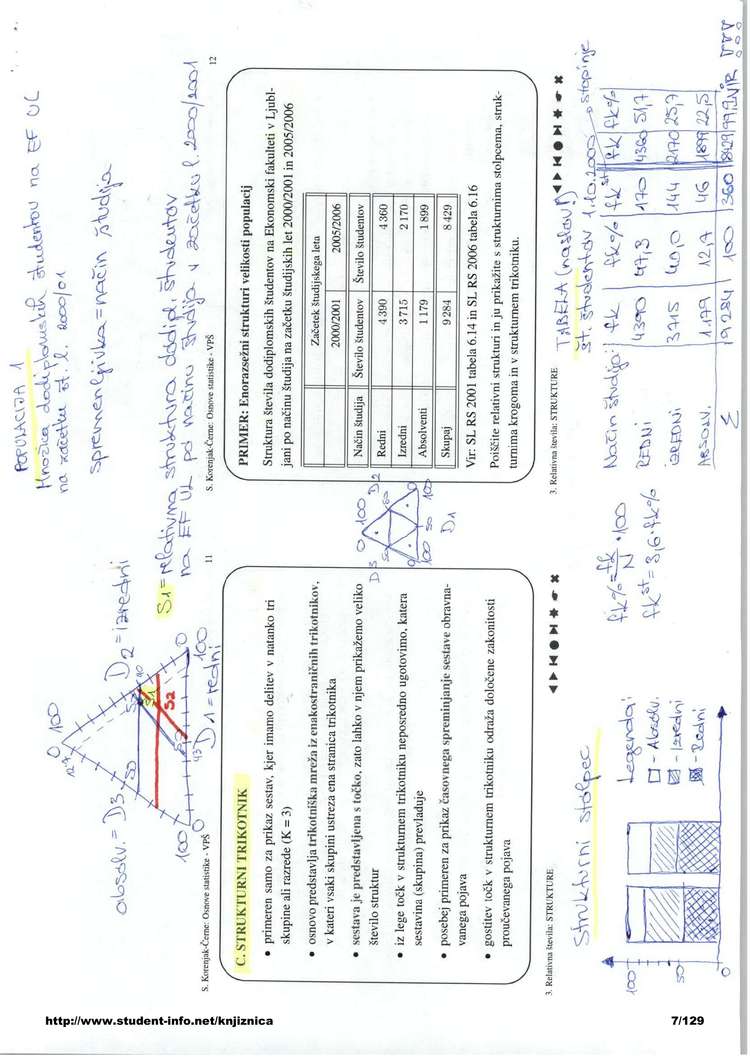 absolv. = D3
D2 = izredni
D1 = redni
0 100
12,7
50
40
50
50
47,3
100 0
0 100
S1
S2
S. Korenjak-Černe: Osnove statistike - VPŠ 11
C. STRUKTURNI TRIKOTNIK
• primeren samo za prikaz sestav, kjer imamo delitev v natanko tri
skupine ali razrede (K = 3)
• osnovo predstavlja trikotniška mreža iz enakostraničnih trikotnikov,
v kateri vsaki skupini ustreza ena stranica trikotnika
• sestava je predstavljena s točko, zato lahko v njem prikažemo veliko
število struktur
• iz lege točk v strukturnem trikotniku neposredno ugotovimo, katera
sestavina (skupina) prevladuje
• posebej primeren za prikaz časovnega spreminjanje sestave obravna-
vanega pojava
• gostitev točk v strukturnem trikotniku odraža določene zakonitosti
proučevanega pojava
3. Relativna števila: STRUKTURE
Strukturni stolpec
100
50
0
Legenda:
- Absolv.
- Izredni
- Redni
POPULACIJA 1
Množica dodiplomskih študentov na EF UL
na začetku št. l. 2000/01
spremenljivka = način študija
S1 = relativna struktura dodipl. študentov
na EF UL po načinu študija v začetku l. 2000/2001
S. Korenjak-Černe: Osnove statistike - VPŠ 12
PRIMER: Enorazsežni strukturi velikosti populacij
Struktura števila dodiplomskih študentov na Ekonomski fakulteti v Ljubl-
jani po načinu študija na začetku študijskih let 2000/2001 in 2005/2006
Začetek študijskega leta
2000/2001 2005/2006
Način študija Število študentov Število študentov
Redni 4 390 4 360
Izredni 3 715 2 170
Absolventi 1 179 1 899
Skupaj 9 284 8 429
Vir: SL RS 2001 tabela 6.14 in SL RS 2006 tabela 6.16
Poiščite relativni strukturi in ju prikažite s strukturnima stolpcema, struk-
turnima krogoma in v strukturnem trikotniku.
0 100
D3 D2
50
0
100 50 100
D1
3. Relativna števila: STRUKTURE
TABELA (naslov!)
št. študentov 1.10.2000
stopinje
Način študija: fk fk% fk st fk fk%
REDNI 4390 47,3 170 4360 51,7
IZREDNI 3715 40,0 144 2170 25,7
ABSOLV. 1.179 12,7 46 1899 22,5
Σ 9284 100 360 8429 99,9
fk% = fk/N · 100
fk st = 3,6 · fk%
http://www.student-info.net/knjiznica 7/129